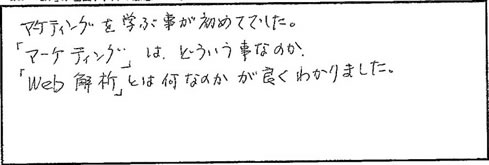 マケティングを学ぶ事が初めてでした。
「マーケティング」は、どういう事なのか、
「Web 解析」とは何なのか が良くわかりました。